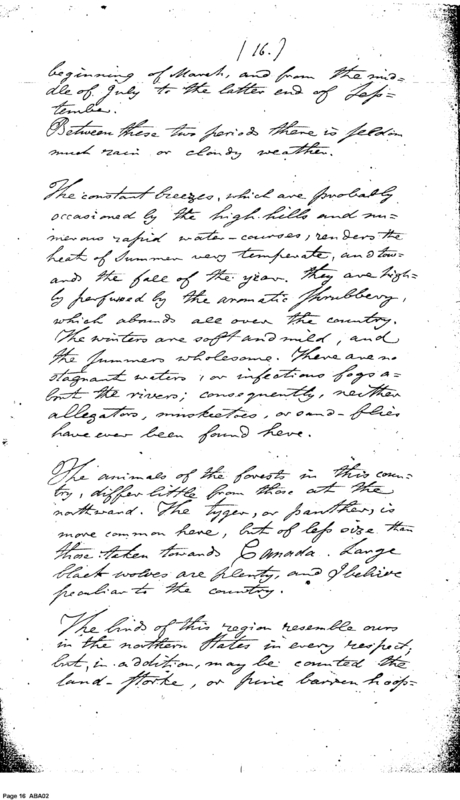 (16.)
beginning of March, and from the mid=
dle of July to the latter end of Sep=
tember.
Between these two periods there is seldom
much rain or cloudy weather.
The constant breezes, which are probably
occasioned by the high hills and nu=
merous rapid water-courses, renders the
heat of Summer very temperate, and tow=
ards the fall of the year. they are high=
ly perfumed by the aromatic shrubbery,
which abounds all over the country.
The winters are soft and mild, and
the summers wholesome. There are no
stagnant waters, or infectious fogs a=
bout the rivers; consequently, neither
allegators, muskeetoes, or sand-flies
have ever been found here.
The animals of the forests in this coun=
try, differ little from those at the
northward. The tyger, or panther, is
more common here, but of less size than
those taken towards Canada. Large
black wolves are plenty, and I believe
peculiar to the country.
The birds of this region resemble ours
in the northern States in every respect;
but, in addition, may be counted the
land-storke, or pine barren hoop=
Page 16 ABA02